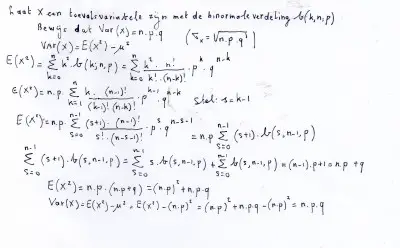 Laat X een toevalsvariabele zijn met de binormole verdeling b(k,n,p)
Bewijs dat Var(X) = n.p.q (σₓ = √n.p.q)
Var(X) = E(X²) - μ²
E(X²) = Σ_{k=0}^{n} k². b(k; n, p) = Σ_{k=0}^{n} k². n! / k! . (n-k)! . p^k . q^{n-k}
E(X²) = n.p. Σ_{k=1}^{n} k. (n-1)! / (k-1)! (n-k)! . p^{k-1} . q^{n-k} Stel: s = k-1
E(X²) = n.p. Σ_{s=0}^{n-1} (s+1). (n-1)! / s! . (n-s-1)! . p^s . q^{n-s-1} = n.p Σ_{s=0}^{n-1} (s+1). b(s, n-1, p)
Σ_{s=0}^{n-1} (s+1). b(s, n-1, p) = Σ_{s=0}^{n-1} s. b(s, n-1, p) + Σ_{s=0}^{n-1} b(s, n-1, p) = (n-1).p+1 = n.p+q
E(X²) = n.p.(n.p+q) = (n.p)² + n.p.q
Var(X) = E(X²) - μ² = E(X²) - (n.p)² = (n.p)² + n.p.q - (n.p)² = n.p.q